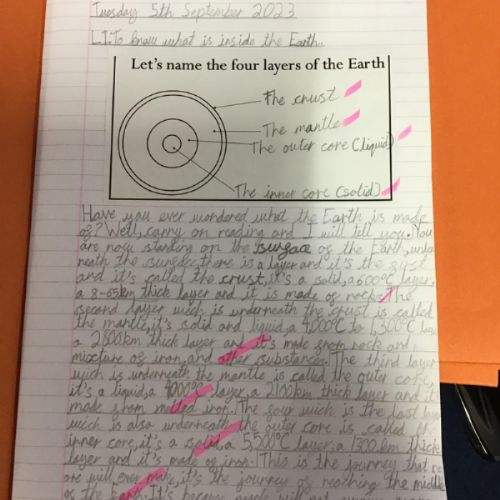 Tuesday 5th September 2023
L.I: To know what is inside the Earth.
Let's name the four layers of the Earth
The crust
The mantle
The outer core (liquid)
The inner core (solid)
Have you ever wondered what the Earth is made
of? Well, carry on reading and I will tell you. You
are now standing on the surface of the Earth, under
neath the surface, there is a layer and it's the
and it's called the crust, it's a solid, a 600°C layer,
a 8-65km thick layer and it is made of rocks. The
second layer wich is underneath the crust is called
the mantle, it's solid and liquid, a 4,000°C to 1,300°C
a 2800km thick layer and it's made from rock and
mixture of iron, and other substances. The third layer
wich is underneath the mantle is called the outer core,
it's a liquid, a 4000°C layer, a 2100km thick layer and it
made from melted iron. The four wich is the last
wich is also underneath the outer core is called the
inner core, it's a solid, a 5,500°C layer, a 1300km thick
layer and it's made of iron. This is the journey that
one will ever make, it's the journey of reaching the middle
of the Earth. It's because people will not